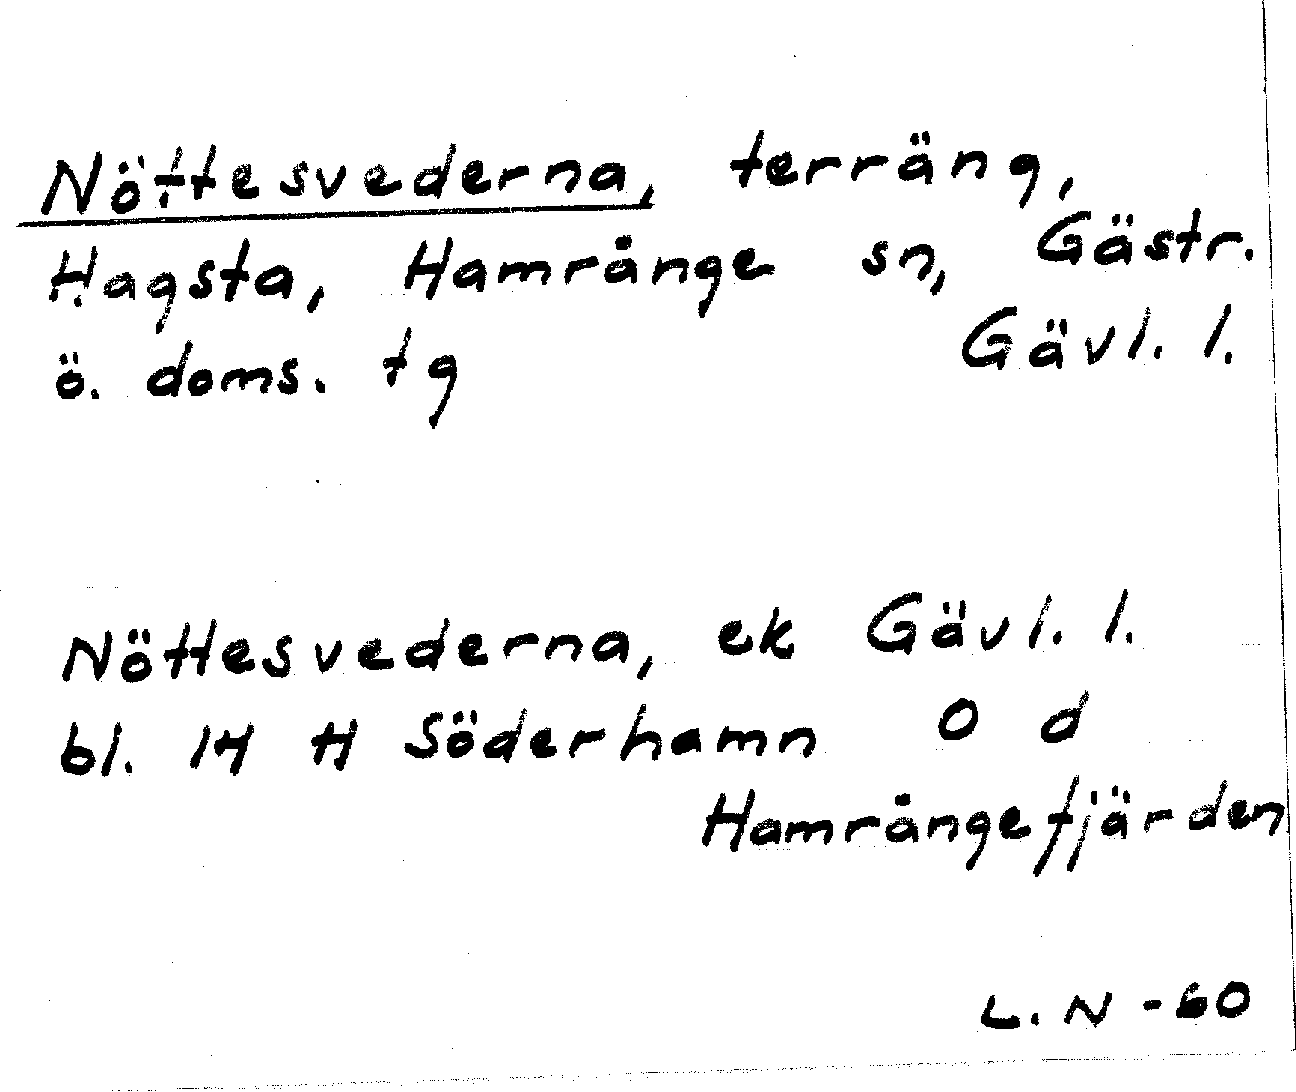 Nöttesvederna, terräng,
Hagsta, Hamrånge sn, Gästr.
ö. doms. tg Gävl. l.
Nöttesvederna, ek Gävl. l.
bl. 14 H Söderhamn O d
Hamrångefjärden
L. N -60